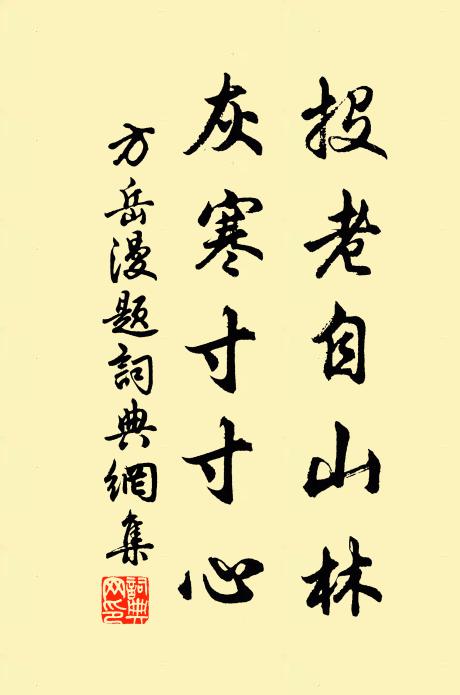 投老自山林
灰寒寸寸心
方岳漫题詞典網集
詞典網印